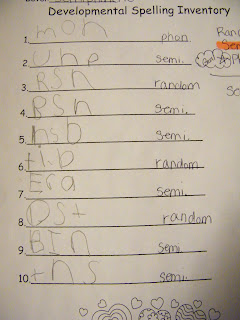 Developmental Spelling Inventory
1. mon phon
2. Uhe semi.
3. RSn random
4. RSn semi.
5. nsb semi.
6. tib random
7. Era semi.
8. DSt random
9. BIn semi.
10. tns semi.